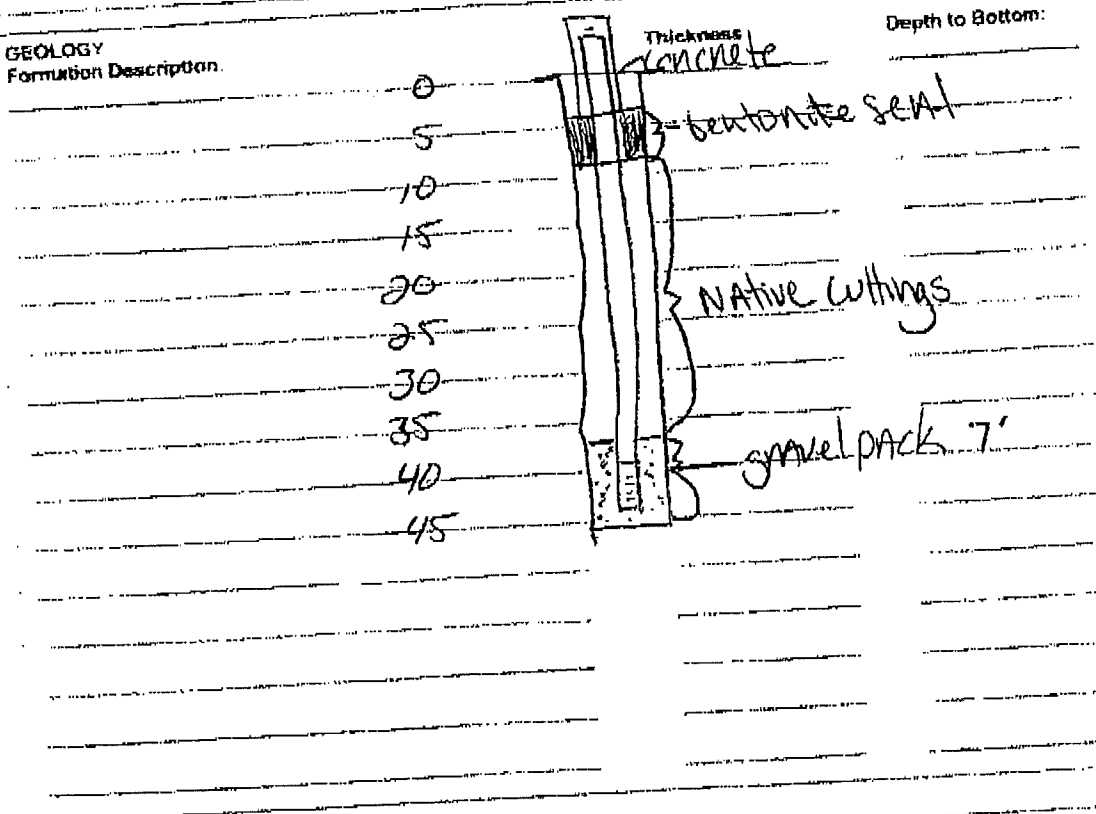 GEOLOGY
Formation Description.
Thickness
Depth to Bottom:
concrete
0
5
bentonite seal
10
15
20
NAtive cuttings
25
30
35
gravel pack 7'
40
45